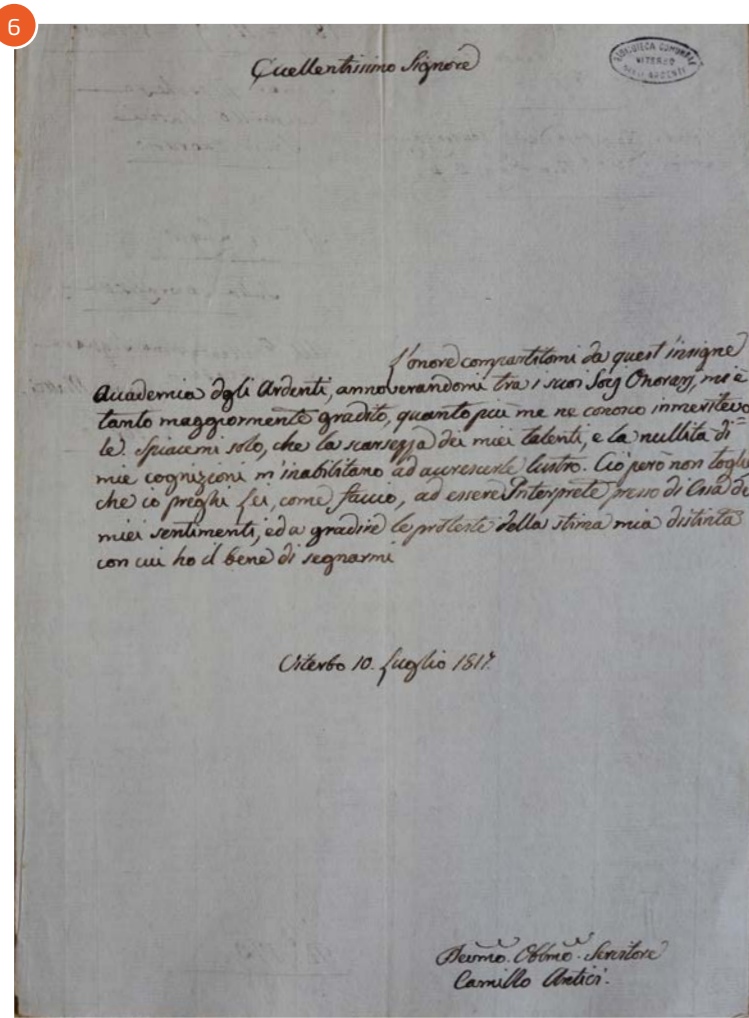 6
Eccellentissimo Signore
BIBLIOTECA COMUNALE
VITERBO
DEGLI ARDENTI
L'onore compartitomi da quest'insigne
Accademia degli Ardenti, annoverandomi tra i suoi Socj Onorarj, mi è
tanto maggiormente gradito, quanto più me ne conosco immeritevo=
le. Spiacemi solo, che la scarsezza dei miei talenti, e la nullità di
mie cognizioni m'inabilitano ad accrescerle lustro. Ciò però non toglie
che io preghi Lei, come faccio, ad essere Interprete presso di Essa de
miei sentimenti, ed a gradire le proteste della stima mia distinta
con cui ho il bene di segnarmi
Viterbo 10. Luglio 1817.
Devmo. Obbmo. Servitore
Camillo Antici.